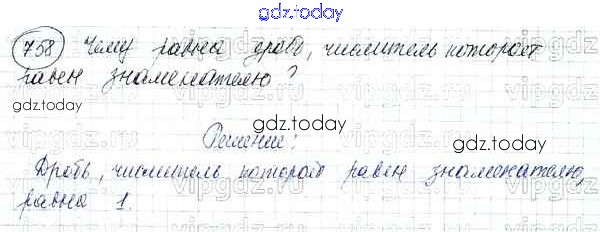 gdz.today
758 Чему равна дробь, числитель которой
равен знаменателю?
gdz.today
gdz.today
Решение:
gdz.today
Дробь, числитель которой равен знаменателю,
равна 1.